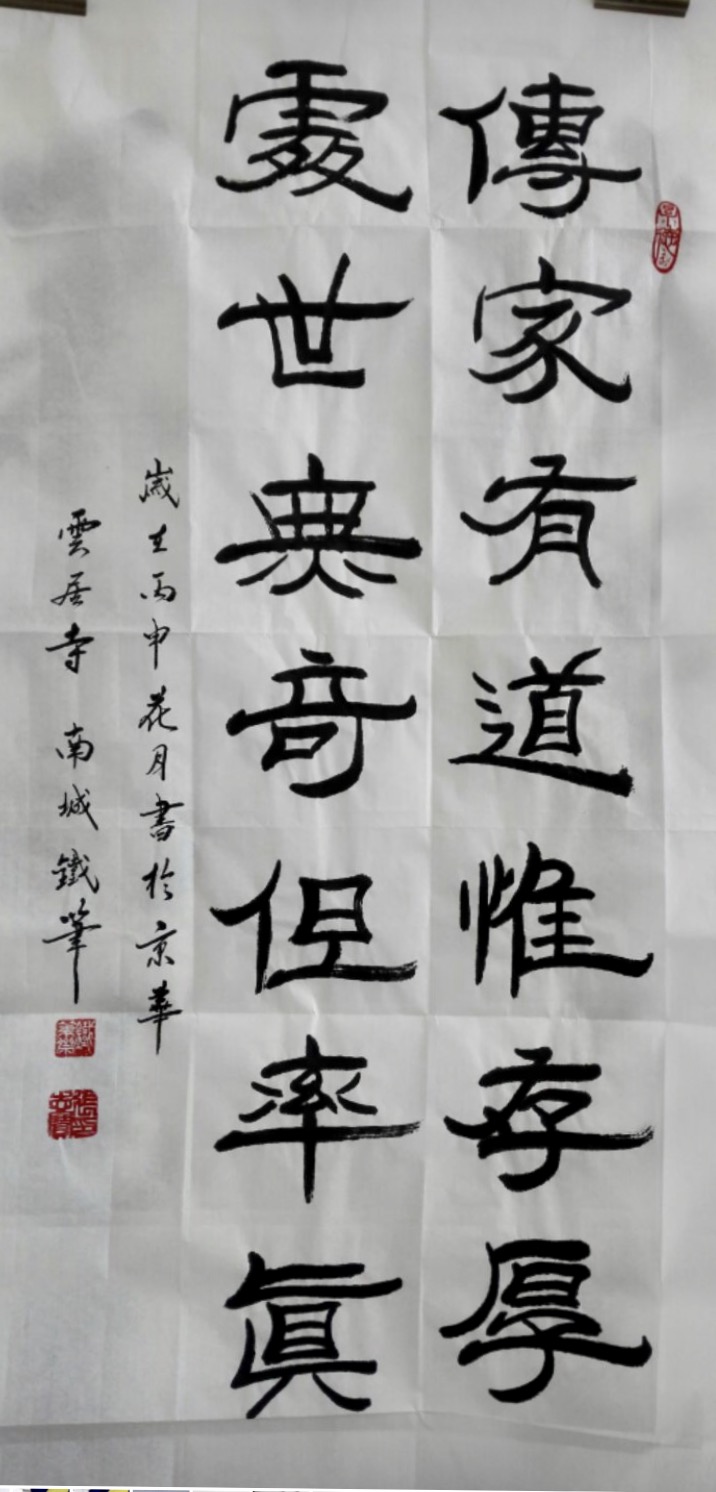 傳家有道惟存厚
處世無奇但率真
歲在丙申花月書於京華
雲居寺 南城鐵筆